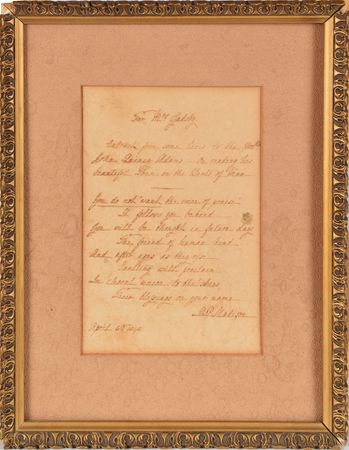 For Mrs Gadsby
you some lines to the Honble
John Quincy Adams on reading his
beautiful Poem on the Wants of Man
You do not want the voice of praise
It follows you
You will be thought in future days
The friend of human kind
And after ages as they rise
will proclaim
In choral union to the skies
Their blessings on your name
D P Madison
April